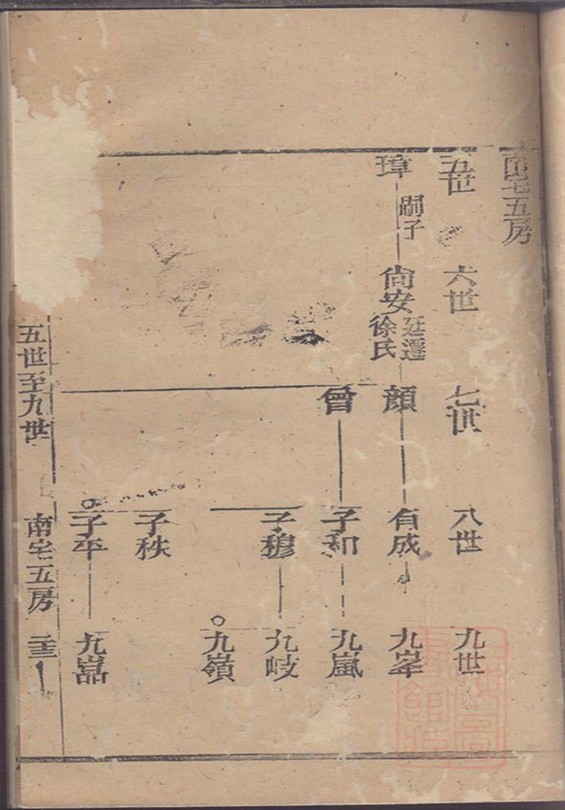 南宅五房
五世
六世
七世
八世
九世
璋
嗣子
尙安
廷遷
徐氏
顔
有成
九峯
曾
子和
九嵐
子穆
九岐
九嶺
子秩
子平
九嵓
五世至九世
南宅五房